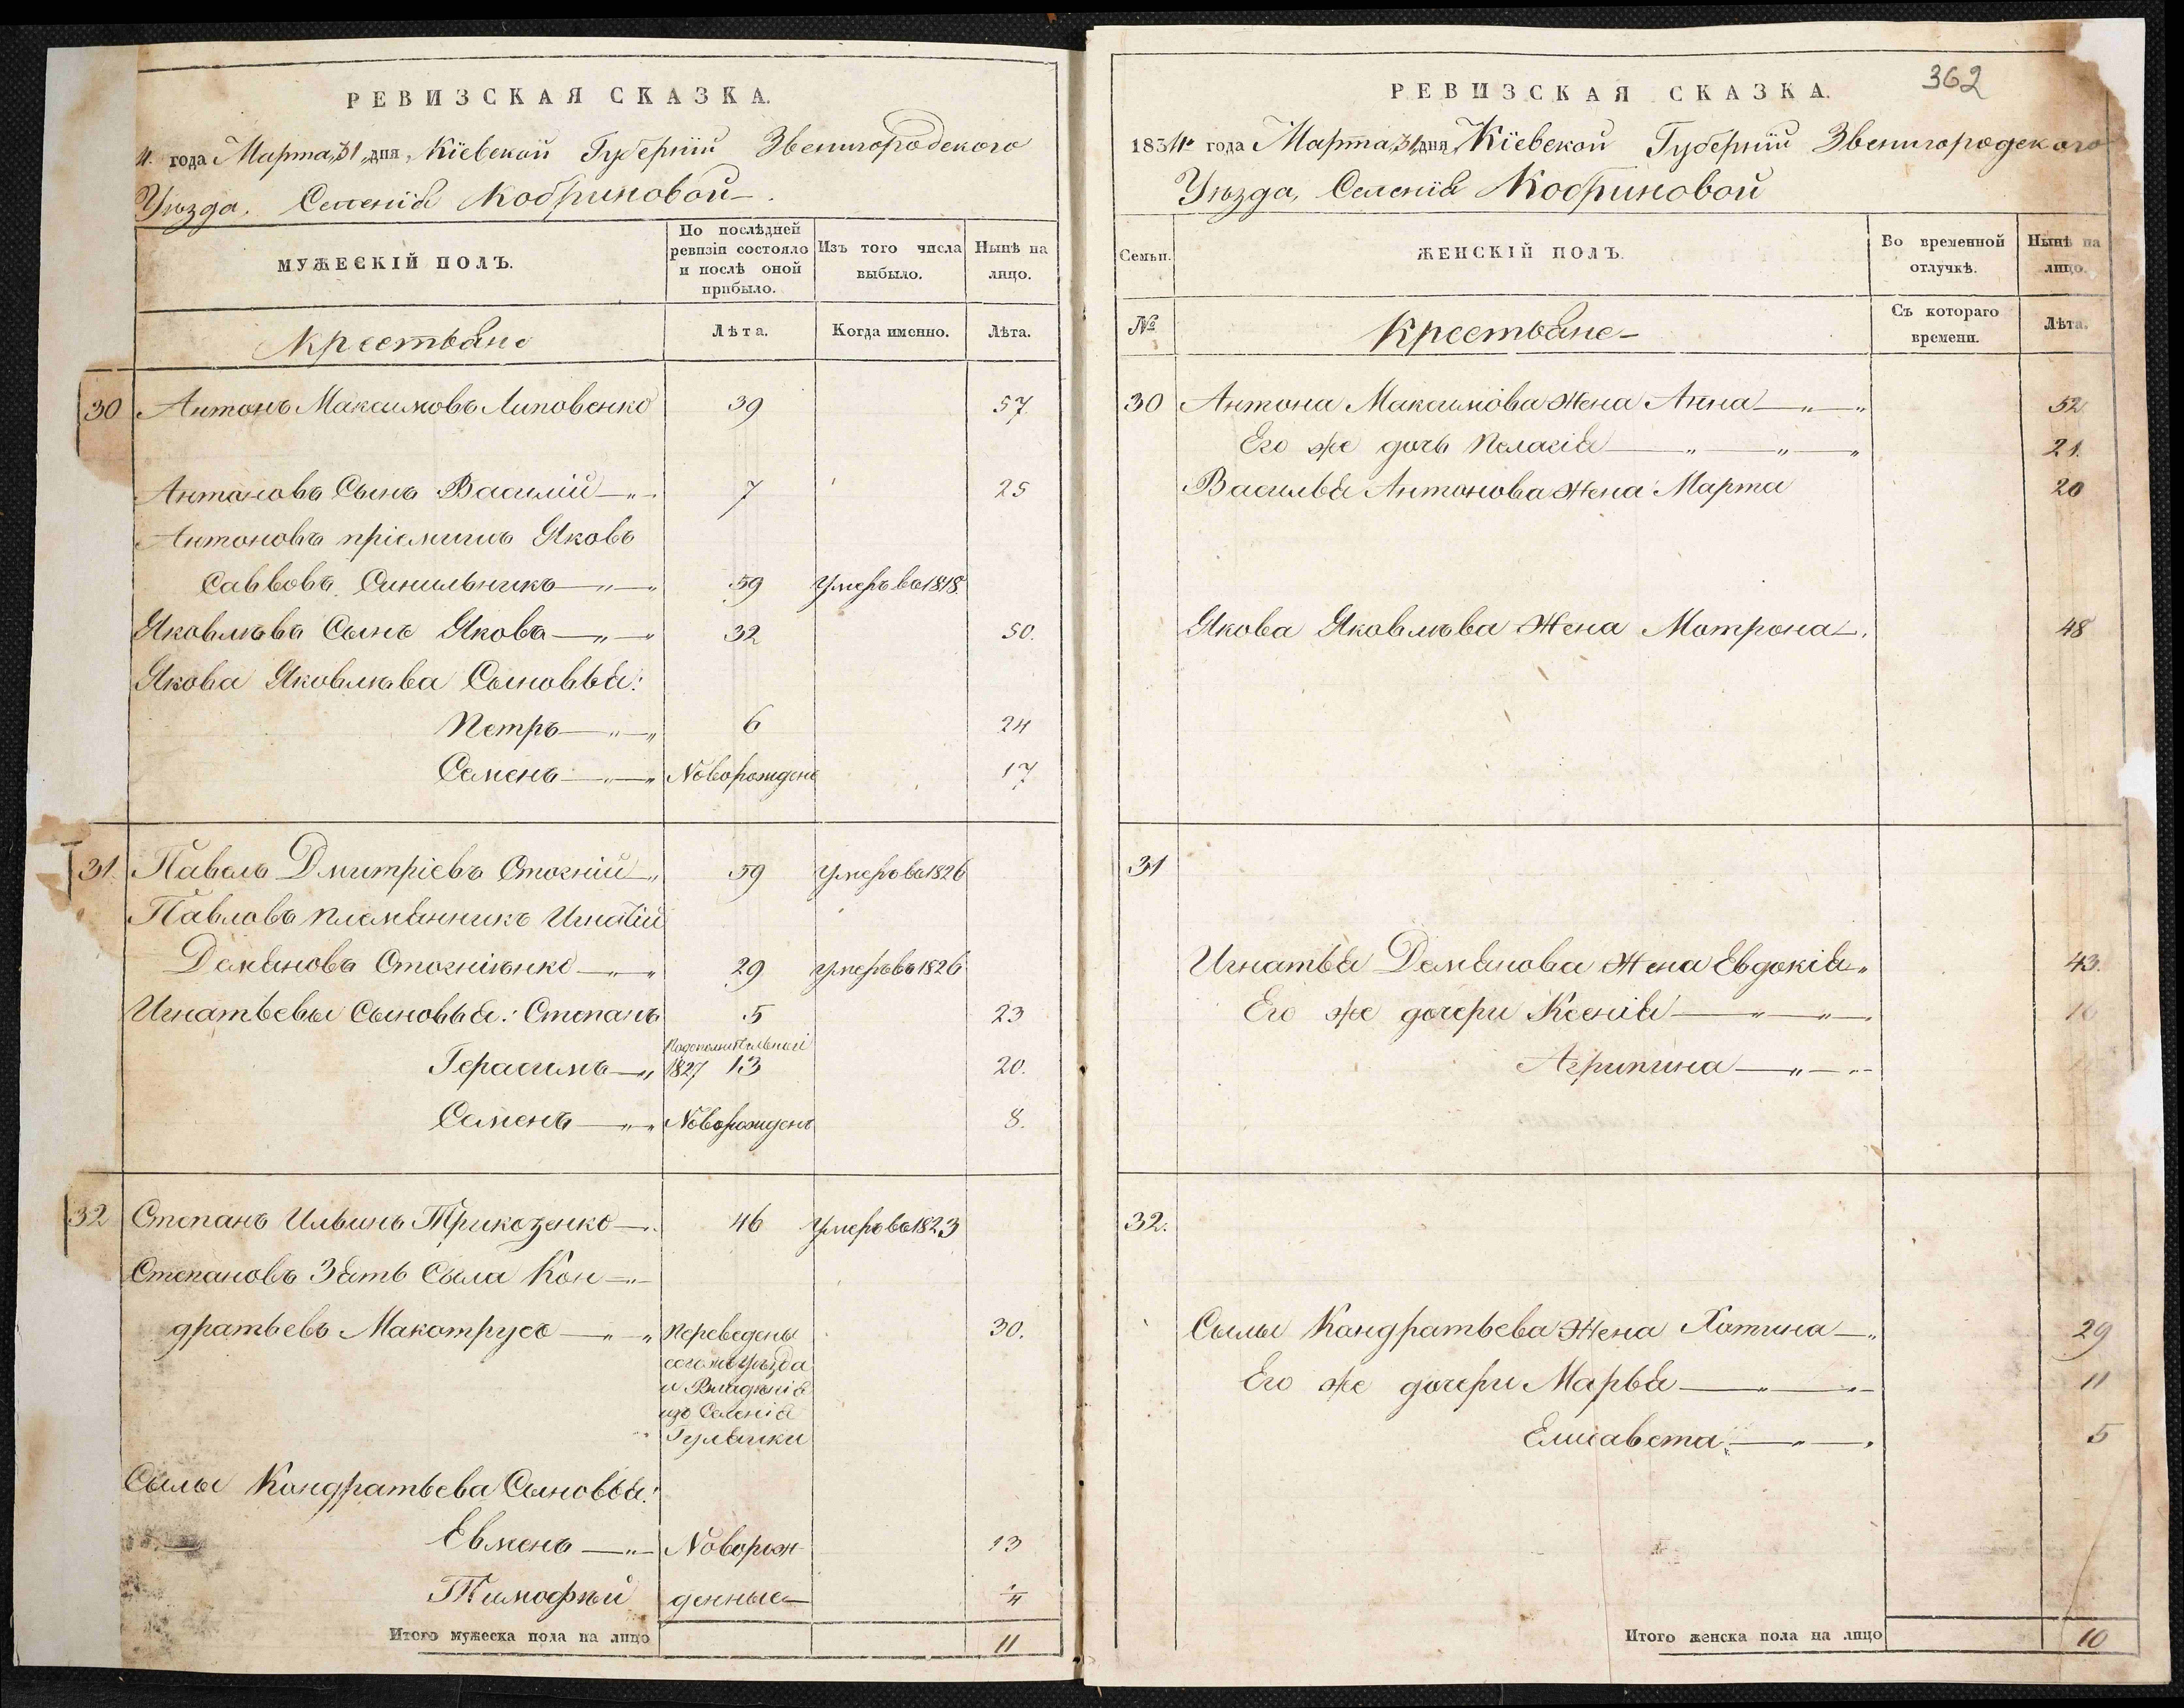 РЕВИЗСКАЯ СКАЗКА.
4. года Марта 31 дня, Кіевской Губерніи Звенигородского
Уѣзда, Селенія Кобриновой
МУЖЕСКІЙ ПОЛЪ.
По послѣдней ревизіи состояло и послѣ оной прибыло.
Изъ того числа выбыло.
Нынѣ на лицо.
Крестьяне
Лѣта.
Когда именно.
Лѣта.
30 Антонъ Максимовъ Липовенко 39 57
Антоновъ Сынъ Василій 7 25
Антоновъ пріемышъ Яковъ
Саввовъ Синильникъ 59 умеръ въ 1818
Яковлѣвъ Сынъ Яковъ 32 50.
Якова Яковлѣва Сыновья:
Петръ 6 24
Семенъ Новорожденъ 17
31. Павелъ Дмитріевъ Стогній 59 умеръ въ 1826
Павловъ племянникъ Игнатій
Демяновъ Стогніѣнко 29 умеръ въ 1826
Игнатьевы Сыновья: Степанъ 5 23
Подополнительной
Герасимъ 1827 13 20.
Семенъ Новорожденъ 8.
32 Степанъ Ильинъ Трикозенко 46 умеръ въ 1823
Степановъ Зять Сыла Кон-
дратьевъ Макотрусъ Переведены 30.
сего жъ уѣзда
и Владѣнія
изъ Селенія
Гуляйки
Сылы Кондратьева Сыновья:
Евменъ Новорож- 13
Тимофѣй денные 1/4
Итого мужеска пола на лицо 11
РЕВИЗСКАЯ СКАЗКА.
362
1834го года Марта 31 дня, Кіевской Губерніи Звенигородского
Уѣзда, Селенія Кобриновой
Семьи.
ЖЕНСКІЙ ПОЛЪ.
Во временной отлучкѣ.
Нынѣ на лицо.
№
Крестьяне
Съ котораго времени.
Лѣта.
30 Антона Максимова Жена Анна 52
Его же дочь Пелагія 21.
Василья Антонова Жена Марта 20
Якова Яковлѣва Жена Мотрона 48
31
Игнатья Демянова Жена Евдокія 43.
Его же дочери Ксенія 16
Агрипина
32.
Сылы Кондратьева Жена Хотина 29
Его же дочери Марья 11
Елисавета 5
Итого женска пола на лицо 10